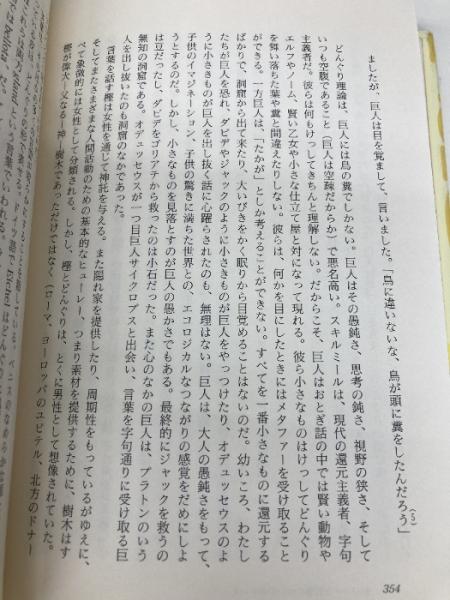 ましたが、巨人は目を覚まして、言いました。「鳥に違いないな、鳥が頭に糞をしたんだろう」(5)
どんぐり理論は、巨人には鳥の糞でしかない。巨人はその愚鈍さ、思考の鈍さ、視野の狭さ、そして
いつも空腹であること(巨人は空疎だからか)で悪名高い。スキルミールは、現代の還元主義者、字句
主義者だ。彼らは何もけっしてきちんと理解しない。だからこそ、巨人はおとぎ話の中では賢い動物や
エルフやノーム、賢い乙女や小さな仕立て屋と対になって現れる。彼ら小さなものはけっしてどんぐり
を舞い落ちた葉や糞と間違えたりしない。彼らは、何かを目にしたときにはメタファーを受け取ること
ができる。一方巨人は、「たかが」としか考えることができない。すべてを一番小さなものに還元する
ばかりで、洞窟から出て来たり、大いびきをかく眠りから目覚めることはないのだ。幼いころ、わたし
たちが巨人を恐れ、ダビデやジャックのように小さきものが巨人をやっつけたり、オデュッセウスのよ
うに小さきものが巨人を出し抜く話に心躍らされたのも、無理はない。巨人は、大人の愚鈍さをもって、
子供のイマジネーション、子供の驚きに満ちた世界との、エコロジカルなつながりの感覚をだめにしよ
うとするのだ。しかし、小さなものを見落とすのが巨人の愚かさでもある。最終的にジャックを救うの
は豆だったし、ダビデをゴリアテから救ったのは小石だった。また心のなかの巨人は、プラトンのいう
無知の洞窟である。オデュッセウスが一つ目巨人サイクロプスと出会い、言葉を字句通りに受け取る巨
人を出し抜いたのも洞窟のなかであった。
言葉を話す樫は女性を通して神託を与える。また隠れ家を提供したり、周期性をもっているがゆえに、
そしてまたさまざまな人間活動のための基本的なヒューレー、つまり素材を提供するために、樹木はす
べて象徴的には女性として分類される。しかし、樫とどんぐりは、とくに男性として想像されていた。
樫が偉大な父なる神の樹木であっただけではなく(ローマ、ヨーロッパのユピテル、北方のドナー
354